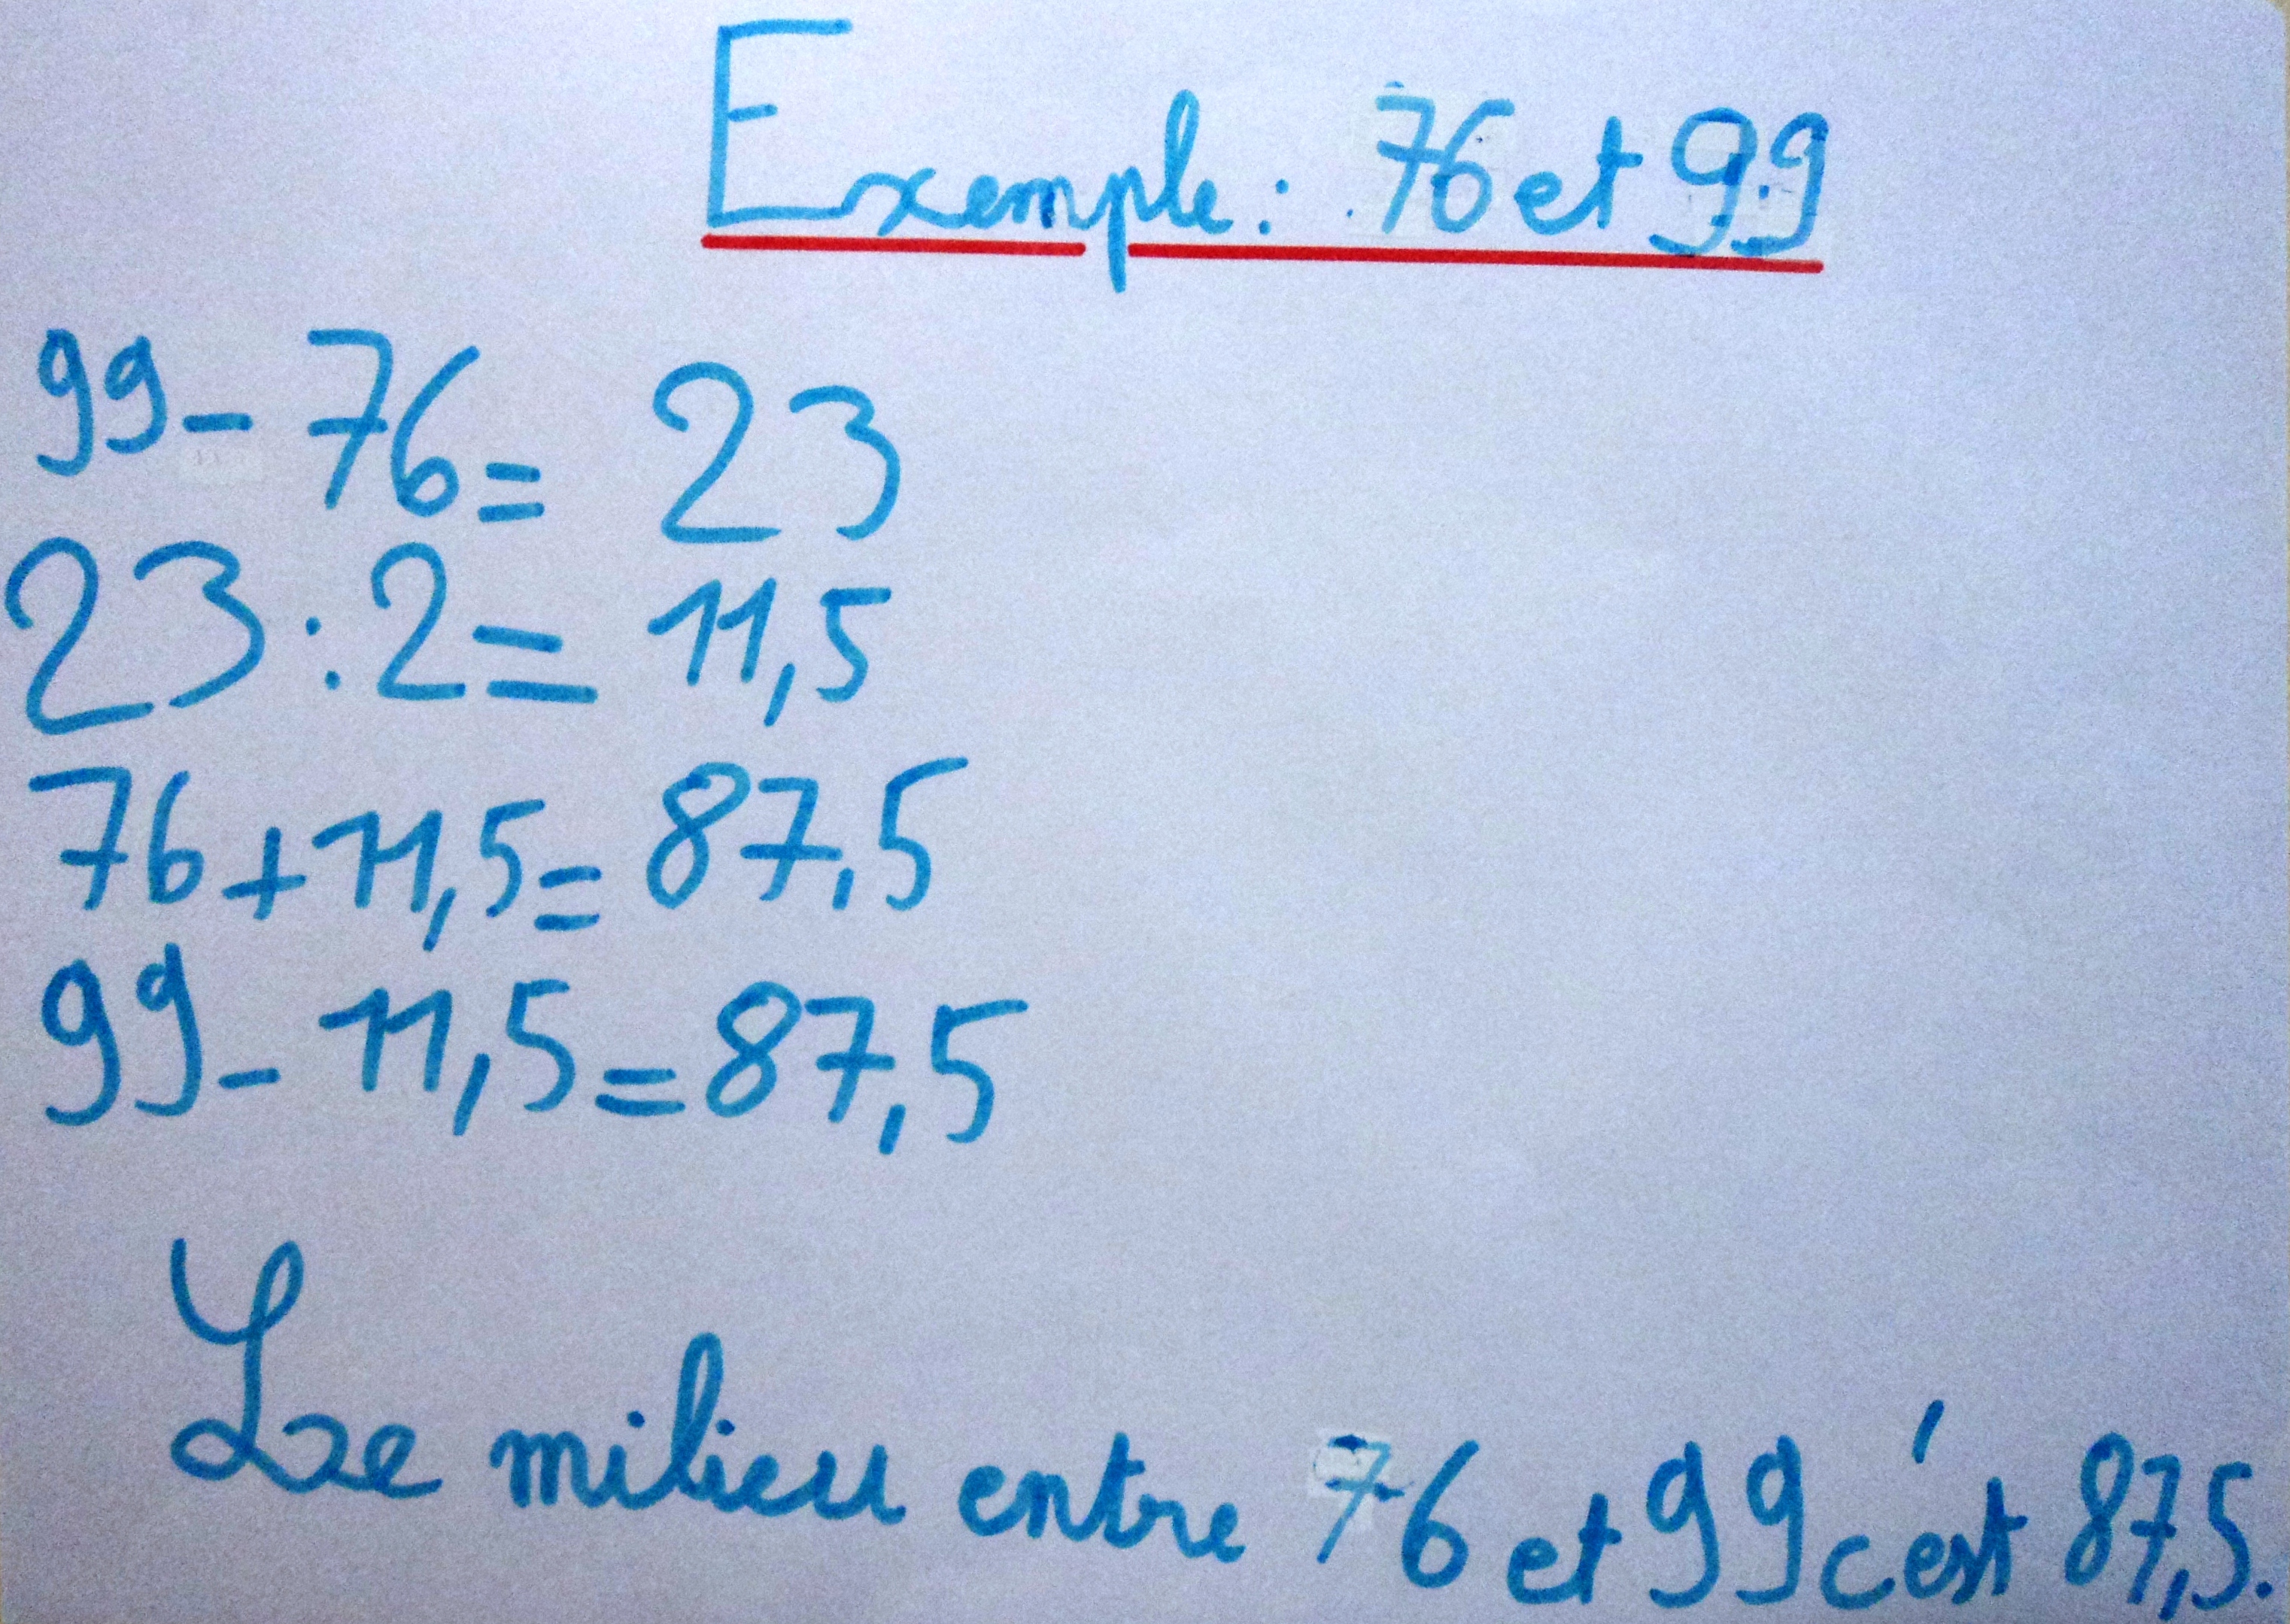 Exemple: 76 et 99
99 - 76 = 23
23 : 2 = 11,5
76 + 11,5 = 87,5
99 - 11,5 = 87,5
Le milieu entre 76 et 99 c'est 87,5.